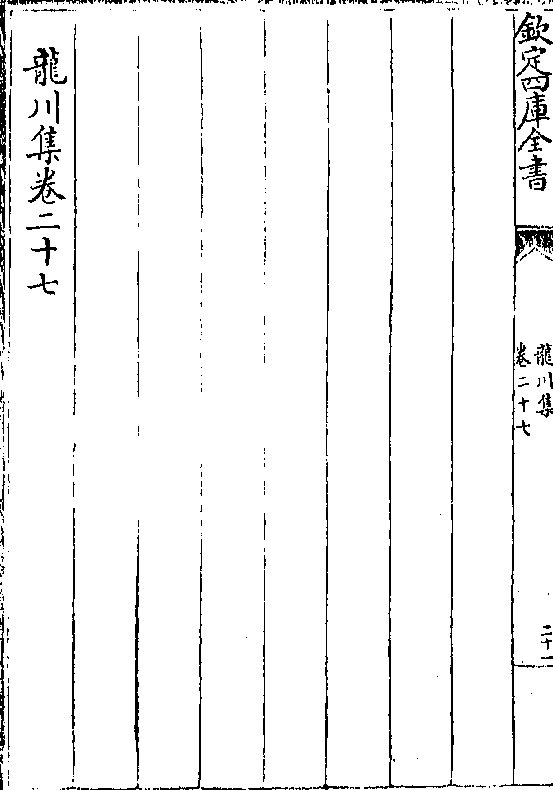 欽定四庫全書
龍川集
卷二十七
二十一
龍川集卷二十七